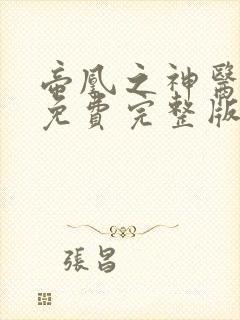 帝凰之神醫
免費完整版
張昌